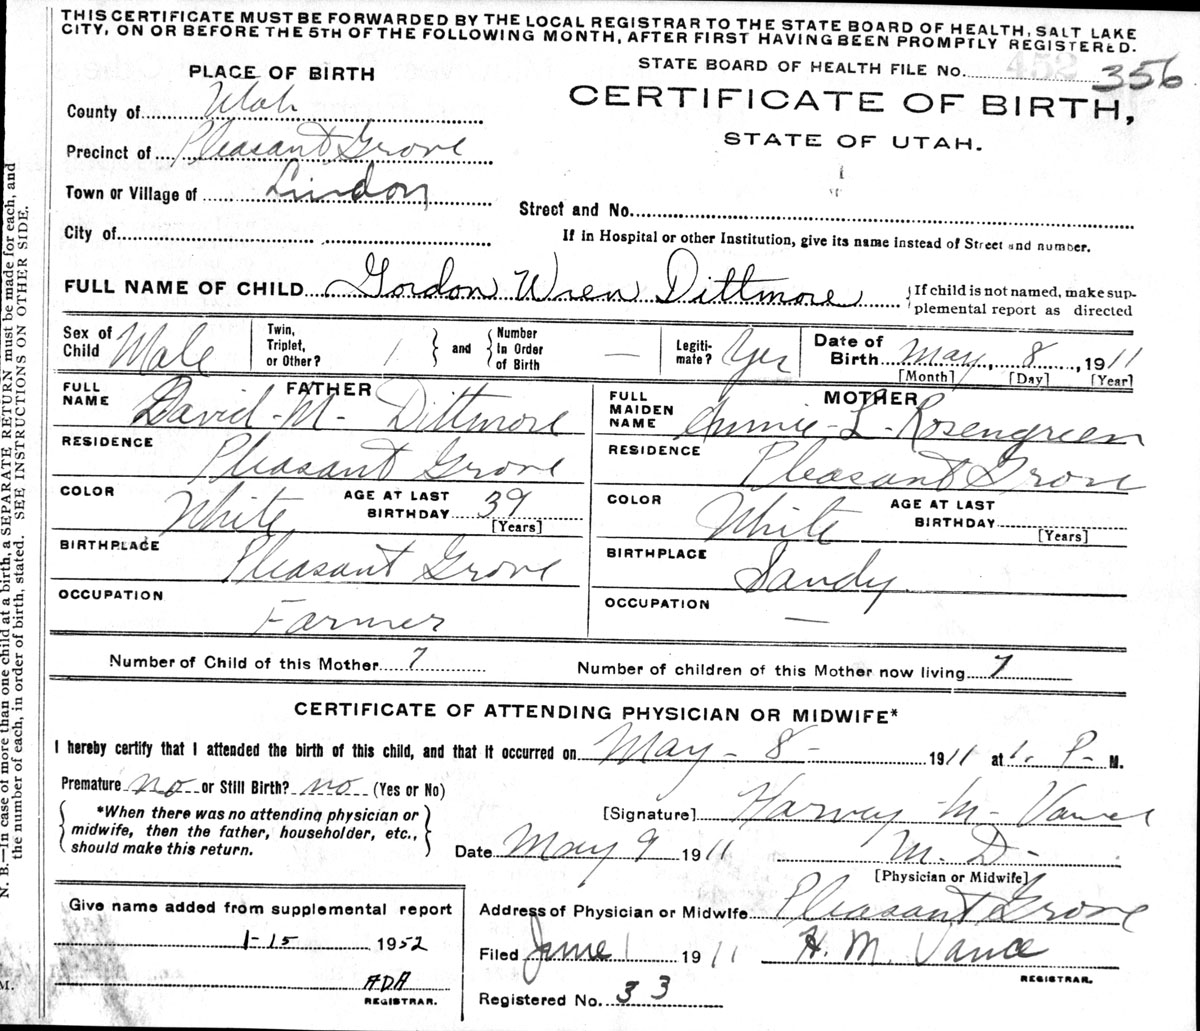 THIS CERTIFICATE MUST BE FORWARDED BY THE LOCAL REGISTRAR TO THE STATE BOARD OF HEALTH, SALT LAKE
CITY, ON OR BEFORE THE 5TH OF THE FOLLOWING MONTH, AFTER FIRST HAVING BEEN PROMPTLY REGISTERED.
PLACE OF BIRTH
STATE BOARD OF HEALTH FILE No. 452 356
County of Utah
CERTIFICATE OF BIRTH,
Precinct of Pleasant Grove
STATE OF UTAH.
Town or Village of Lindon
Street and No.
City of
If in Hospital or other Institution, give its name instead of Street and number.
FULL NAME OF CHILD Gordon Wren Dittmore
{If child is not named, make sup-
plemental report as directed
Sex of Child Male
Twin, Triplet, or Other? 1 } and { Number In Order of Birth —
Legiti-mate? Yes
Date of Birth May 8, 1911
[Month] [Day] [Year]
FATHER
FULL NAME David-M-Dittmore
MOTHER
FULL MAIDEN NAME Annie-L-Rosengreen
RESIDENCE Pleasant Grove
RESIDENCE Pleasant Grove
COLOR White AGE AT LAST BIRTHDAY 39 [Years]
COLOR White AGE AT LAST BIRTHDAY [Years]
BIRTHPLACE Pleasant Grove
BIRTHPLACE Sandy
OCCUPATION Farmer
OCCUPATION —
Number of Child of this Mother 7
Number of children of this Mother now living 7
CERTIFICATE OF ATTENDING PHYSICIAN OR MIDWIFE*
I hereby certify that I attended the birth of this child, and that it occurred on May-8- 1911 at 1. P- M.
Premature no or Still Birth? no (Yes or No)
{ *When there was no attending physician or
midwife, then the father, householder, etc.,
should make this return. }
[Signature] Harvey-M-Vance
Date May 9 1911 M.D-
[Physician or Midwife]
Give name added from supplemental report
1-15 1952
ADA
REGISTRAR.
Address of Physician or Midwife Pleasant Grove
Filed June 1 1911 H. M. Vance
REGISTRAR.
Registered No. 33
N. B.—In case of more than one child at a birth, a SEPARATE RETURN must be made for each, and
the number of each, in order of birth, stated. SEE INSTRUCTIONS ON OTHER SIDE.
M.